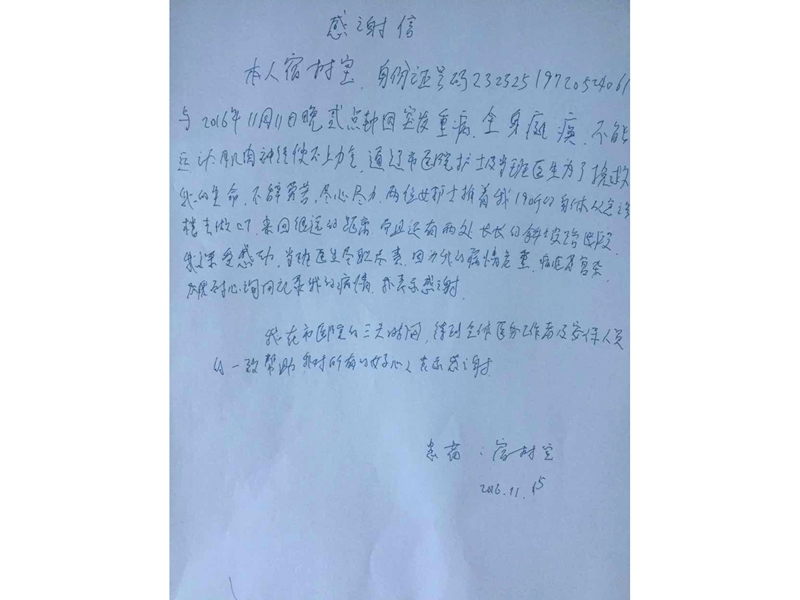 感谢信
本人宿树宝,身份证号码23232519720524061
与2016年11月11日晚贰点钟因突发重病,全身瘫痪,不能
言达,肌肉神经使不上力气,通辽市医院护士及当班医生为了抢救
我的生命,不辞劳苦,尽心尽力,两位女护士推着我190斤的身体从急诊
楼去做CT,来回很远的距离,而且还有两处长长的斜坡路段
我深受感动,当班医生尽职尽责,因为我的病情危重,病症复杂,
耐心询问记录我的病情,我表示感谢.
我在市医院的三天时间,得到全体医务工作者及安保人员
的一致帮助,我对所有的好心人表示感谢
患者:宿树宝
2016.11.15